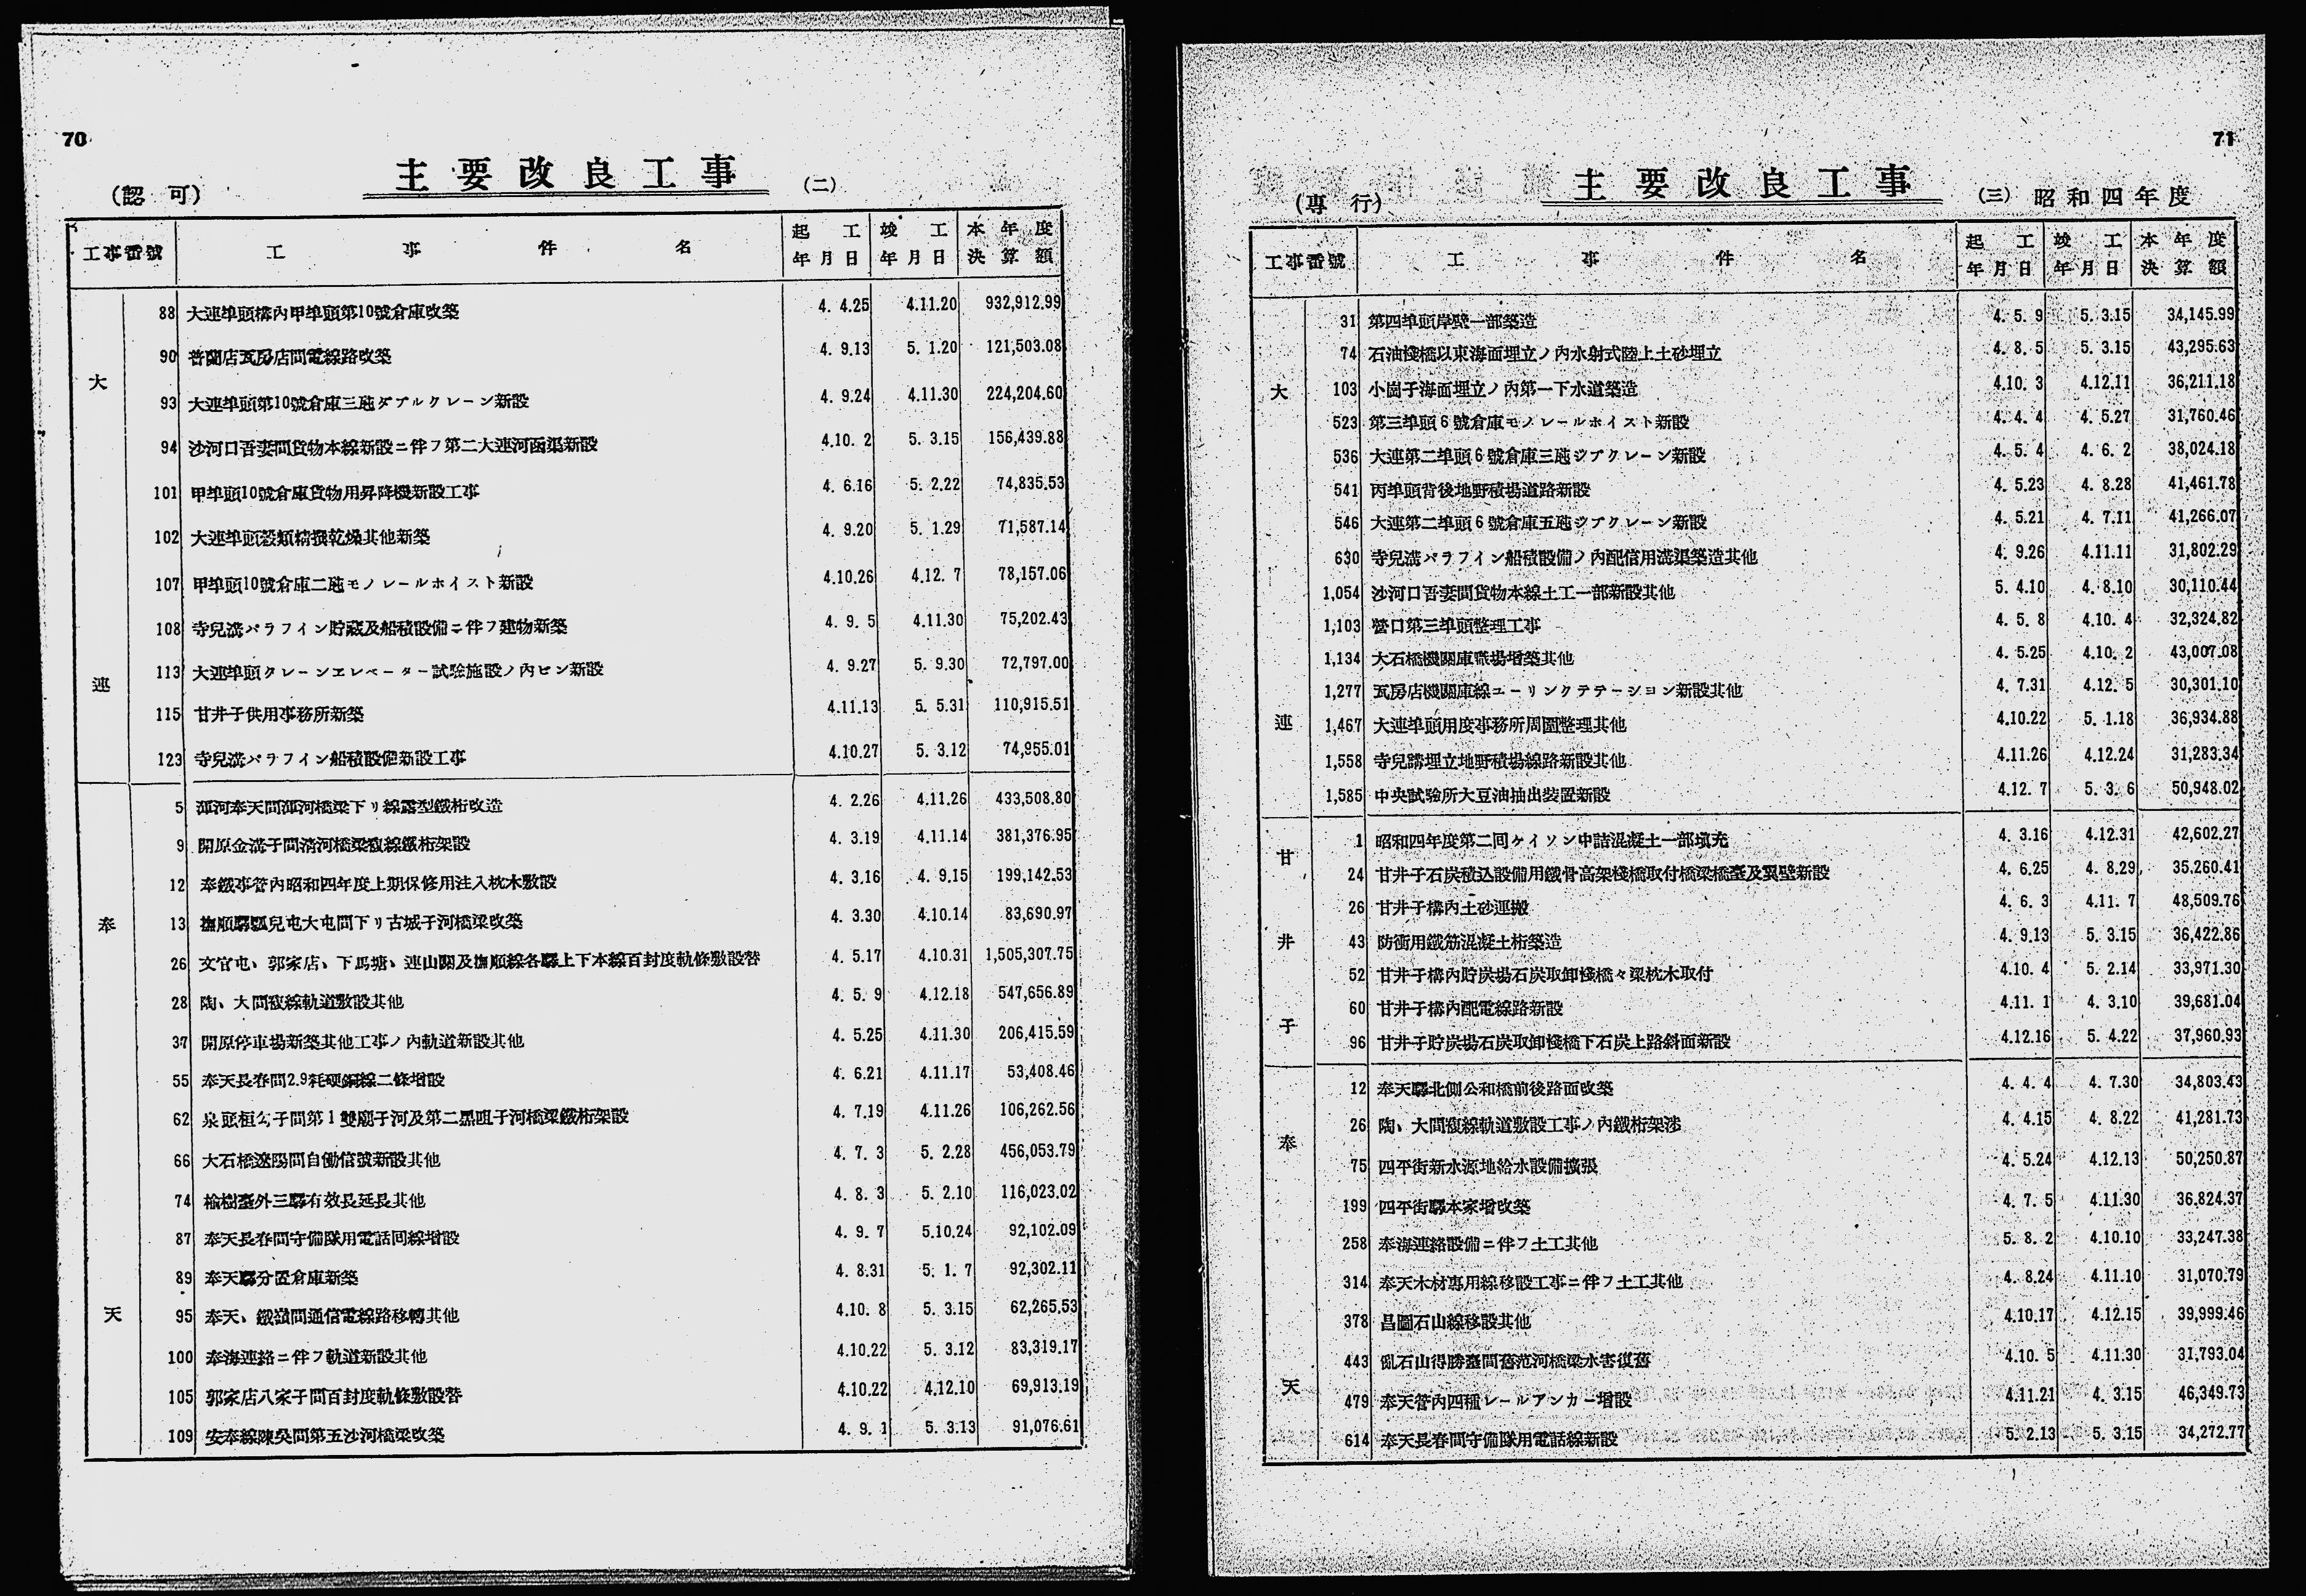 70
主要改良工事
(二)
(認 可)
工事番號 工事件名 起工年月日 竣工年月日 本年度決算額
大連
88 大連埠頭構內甲埠頭第10號倉庫改築 4. 4.25 4.11.20 932,912.99
90 普蘭店瓦房店間電線路改築 4. 9.13 5. 1.20 121,503.08
93 大連埠頭第10號倉庫三瓲ダブルクレーン新設 4. 9.24 4.11.30 224,204.60
94 沙河口吾妻間貨物本線新設ニ伴フ第二大連河函渠新設 4.10. 2 5. 3.15 156,439.88
101 甲埠頭10號倉庫貨物用昇降機新設工事 4. 6.16 5. 2.22 74,835.53
102 大連埠頭穀類精撰乾燥其他新築 4. 9.20 5. 1.29 71,587.14
107 甲埠頭10號倉庫二瓲モノレールホイスト新設 4.10.26 4.12. 7 78,157.06
108 寺兒溝パラフイン貯藏及船積設備ニ伴フ建物新築 4. 9. 5 4.11.30 75,202.43
113 大連埠頭クレーンエレベーター試驗施設ノ內ビン新設 4. 9.27 5. 9.30 72,797.00
115 甘井子供用事務所新築 4.11.13 5. 5.31 110,915.51
123 寺兒溝パラフイン船積設備新設工事 4.10.27 5. 3.12 74,955.01
奉天
5 渾河奉天間渾河橋梁下リ線露型鐵桁改造 4. 2.26 4.11.26 433,508.80
9 開原金溝子間淸河橋梁複線鐵桁架設 4. 3.19 4.11.14 381,376.95
12 奉鐵事管內昭和四年度上期保修用注入枕木敷設 4. 3.16 4. 9.15 199,142.53
13 撫順驛瓢兒屯大屯間下リ古城子河橋梁改築 4. 3.30 4.10.14 83,690.97
26 文官屯、郭家店、下馬塘、連山關及撫順線各驛上下本線百封度軌條敷設替 4. 5.17 4.10.31 1,505,307.75
28 陶、大間複線軌道敷設其他 4. 5. 9 4.12.18 547,656.89
37 開原停車場新築其他工事ノ內軌道新設其他 4. 5.25 4.11.30 206,415.59
55 奉天長春間2.9粍硬銅線二條增設 4. 6.21 4.11.17 53,408.46
62 泉頭桓勾子間第1雙廟子河及第二黑咀子河橋梁鐵桁架設 4. 7.19 4.11.26 106,262.56
66 大石橋遼陽間自働信號新設其他 4. 7. 3 5. 2.28 456,053.79
74 楡樹臺外三驛有效長延長其他 4. 8. 3 5. 2.10 116,023.02
87 奉天長春間守備隊用電話回線增設 4. 9. 7 5.10.24 92,102.09
89 奉天驛分置倉庫新築 4. 8.31 5. 1. 7 92,302.11
95 奉天、鐵嶺間通信電線路移轉其他 4.10. 8 5. 3.15 62,265.53
100 奉海連絡ニ伴フ軌道新設其他 4.10.22 5. 3.12 83,319.17
105 郭家店八家子間百封度軌條敷設替 4.10.22 4.12.10 69,913.19
109 安奉線陳吳間第五沙河橋梁改築 4. 9. 1 5. 3.13 91,076.61
71
主要改良工事
(三) 昭和四年度
(專 行)
工事番號 工事件名 起工年月日 竣工年月日 本年度決算額
大連
31 第四埠頭岸壁一部築造 4. 5. 9 5. 3.15 34,145.99
74 石油棧橋以東海面埋立ノ內水射式陸上土砂埋立 4. 8. 5 5. 3.15 43,295.63
103 小崗子海面埋立ノ內第一下水道築造 4.10. 3 4.12.11 36,211.18
523 第三埠頭6號倉庫モノレールホイスト新設 4. 4. 4 4. 5.27 31,760.46
536 大連第二埠頭6號倉庫三瓲ジブクレーン新設 4. 5. 4 4. 6. 2 38,024.18
541 丙埠頭背後地野積場道路新設 4. 5.23 4. 8.28 41,461.78
546 大連第二埠頭6號倉庫五瓲ジブクレーン新設 4. 5.21 4. 7.11 41,266.07
630 寺兒溝パラフイン船積設備ノ內配信用溝渠築造其他 4. 9.26 4.11.11 31,802.29
1,054 沙河口吾妻間貨物本線土工一部新設其他 5. 4.10 4. 8.10 30,110.44
1,103 營口第三埠頭整理工事 4. 5. 8 4.10. 4 32,324.82
1,134 大石橋機關庫職場增築其他 4. 5.25 4.10. 2 43,007.08
1,277 瓦房店機關庫線コーリングステーション新設其他 4. 7.31 4.12. 5 30,301.10
1,467 大連埠頭用度事務所周圍整理其他 4.10.22 5. 1.18 36,934.88
1,558 寺兒溝埋立地野積場線路新設其他 4.11.26 4.12.24 31,283.34
1,585 中央試驗所大豆油抽出裝置新設 4.12. 7 5. 3. 6 50,948.02
甘井子
1 昭和四年度第二回ケイソン中詰混凝土一部塡充 4. 3.16 4.12.31 42,602.27
24 甘井子石炭積込設備用鐵骨高架棧橋取付橋梁橋臺及翼壁新設 4. 6.25 4. 8.29 35,260.41
26 甘井子構內土砂運搬 4. 6. 3 4.11. 7 48,509.76
43 防衝用鐵筋混凝土桁築造 4. 9.13 5. 3.15 36,422.86
52 甘井子構內貯炭場石炭取卸棧橋々梁枕木取付 4.10. 4 5. 2.14 33,971.30
60 甘井子構內配電線路新設 4.11. 1 4. 3.10 39,681.04
96 甘井子貯炭場石炭取卸棧橋下石炭上路斜面新設 4.12.16 5. 4.22 37,960.93
奉天
12 奉天驛北側公和橋前後路面改築 4. 4. 4 4. 7.30 34,803.43
26 陶、大間複線軌道敷設工事ノ內鐵桁架渉 4. 4.15 4. 8.22 41,281.73
75 四平街新水源地給水設備擴張 4. 5.24 4.12.13 50,250.87
199 四平街驛本家增改築 4. 7. 5 4.11.30 36,824.37
258 奉海連絡設備ニ伴フ土工其他 5. 8. 2 4.10.10 33,247.38
314 奉天木材專用線移設工事ニ伴フ土工其他 4. 8.24 4.11.10 31,070.79
378 昌圖石山線移設其他 4.10.17 4.12.15 39,999.46
443 亂石山得勝臺間舊范河橋梁水害復舊 4.10. 5 4.11.30 31,793.04
479 奉天管內四種レールアンカー增設 4.11.21 4. 3.15 46,349.73
614 奉天長春間守備隊用電話線新設 5. 2.13 5. 3.15 34,272.77